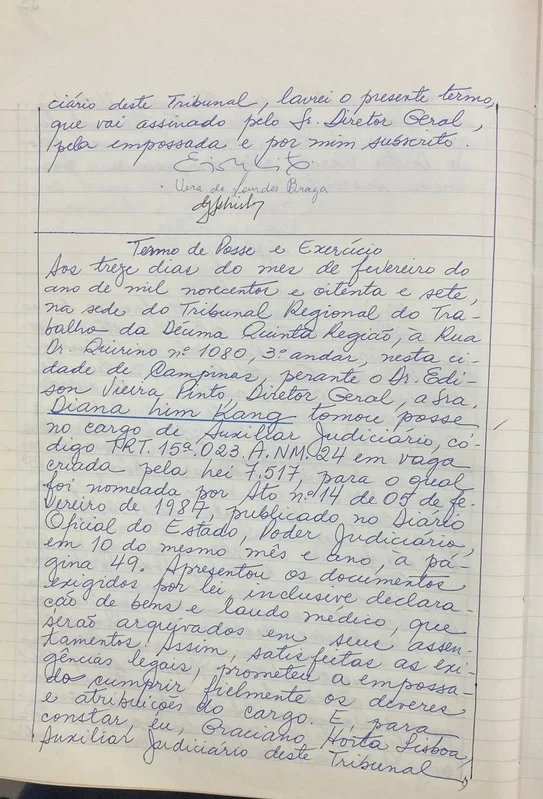 ciário deste Tribunal, lavrei o presente termo,
que vai assinado pelo Sr. Diretor Geral,
pela empossada e por mim subscrito.
Vera de Lourdes Braga
Termo de Posse e Exercício
Aos treze dias do mes de fevereiro do
ano de mil novecentos e oitenta e sete,
na sede do Tribunal Regional do Tra-
balho da Décima Quinta Região, à Rua
Dr. Quirino nº 1080, 3º andar, nesta ci-
dade de Campinas, perante o Dr. Edi-
son Vieira Pinto, Diretor Geral, a Sra.
Diana Lim Kang tomou posse
no cargo de Auxiliar Judiciário, có-
digo TRT. 15ª. 023. A. NM. 24 em vaga
criada pela Lei 7.517, para o qual
foi nomeada por Ato nº 14 de 05 de fe-
vereiro de 1987, publicado no Diário
Oficial do Estado, Poder Judiciário,
em 10 do mesmo mês e ano, à pá-
gina 49. Apresentou os documentos
exigidos por lei, inclusive declara-
ção de bens e laudo médico, que
serão arquivados em seus assen-
tamentos. Assim, satisfeitas as exi-
gências legais, prometeu a empossa-
da cumprir fielmente os deveres
e atribuições do cargo. E, para
constar, eu, Graciano Horta Lisboa,
Auxiliar Judiciário deste Tribunal